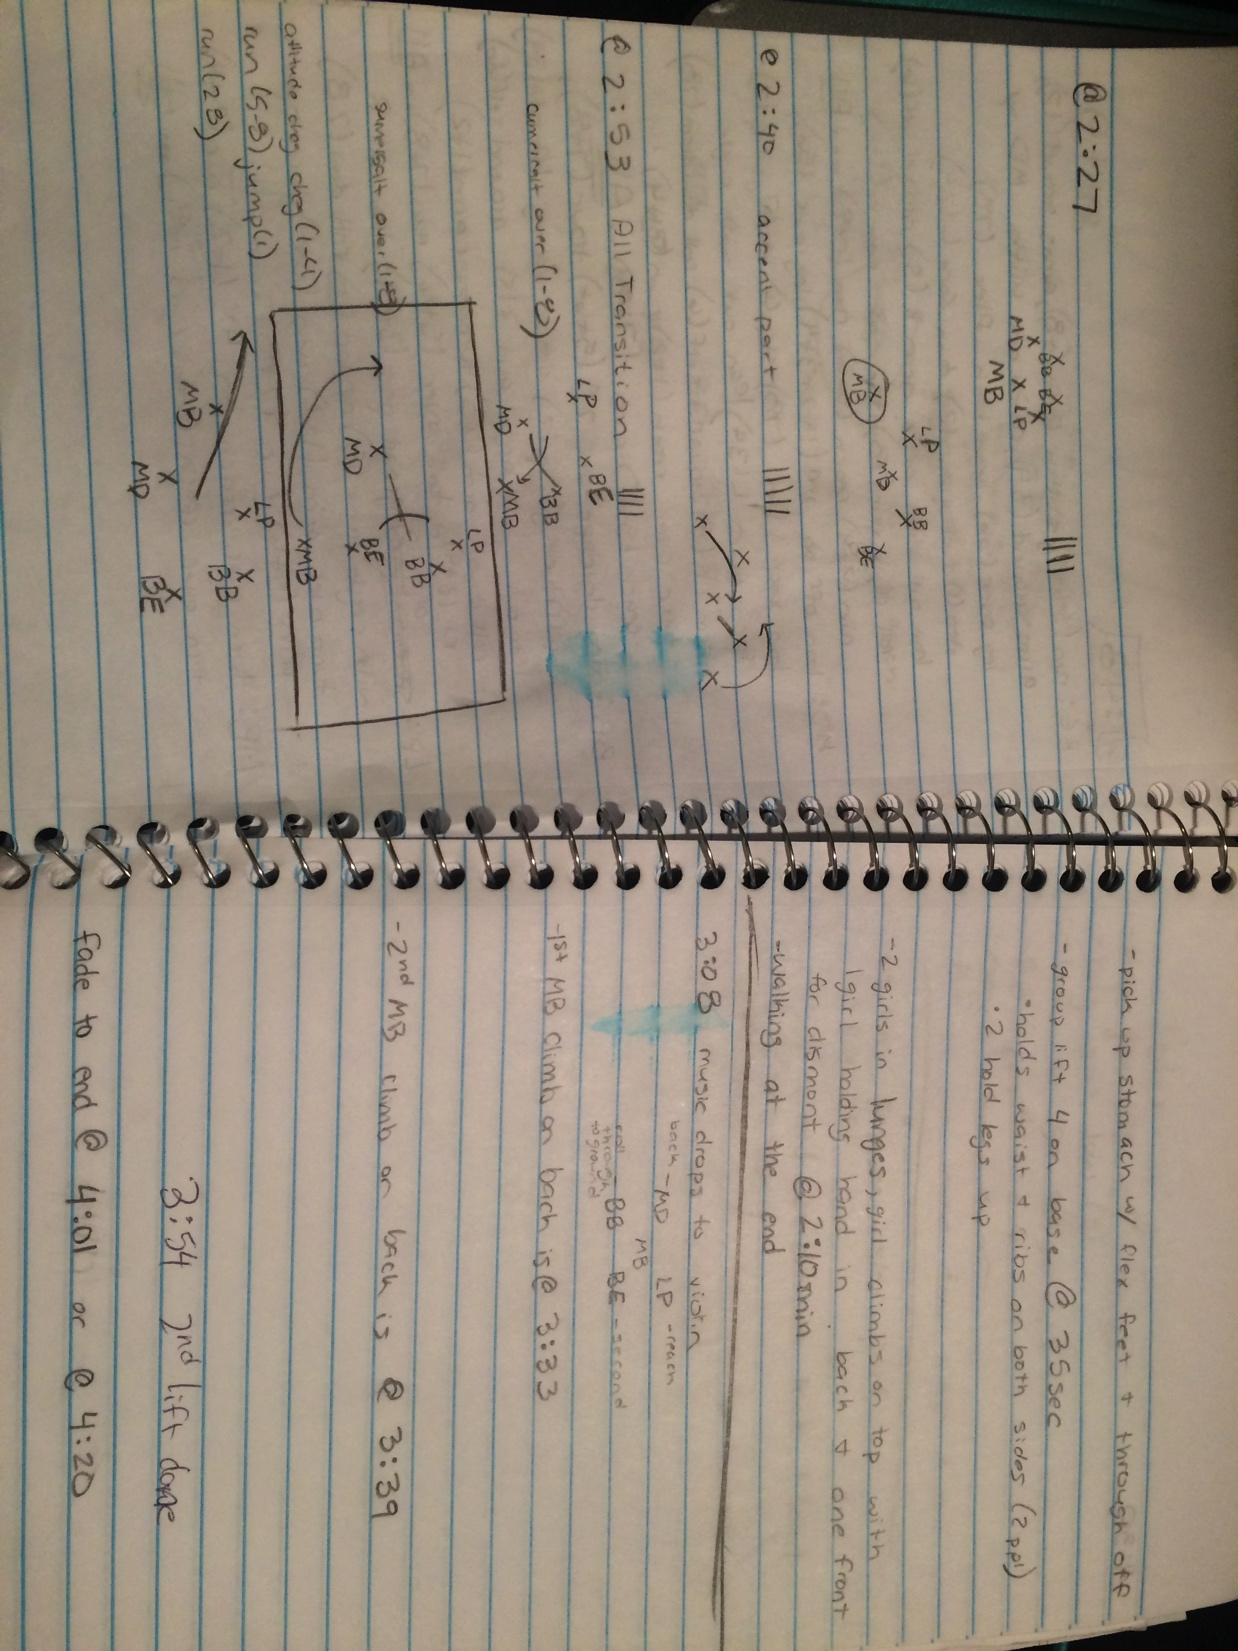 @ 2:27
MD BB BE
MB LP
LP BB
MB MB BE
@ 2:40 accent part
@ 2:53 All Transition
LP BE
BB
MD MB
somersalt over (1-8)
LP
BB
MD BE
MB
attitude chug chug (1-4)
run (5-8) jump (1)
run (28)
LP
MB BB
MD BE
-pick up stomach w/ flex feet + through off
-group lift 4 on base @ 35sec
•holds waist + ribs on both sides (2ppl)
•2 hold legs up
-2 girls in lunges, girl climbs on top with
1 girl holding hand in back + one front
for dismont @ 2:10min
-walking at the end
3:08 music drops to violin
back - MD LP - reach
MB
roll through to ground - BB BE - second
-1st MB climb on back is @ 3:33
-2nd MB climb on back is @ 3:39
3:54 2nd lift done
fade to end @ 4:01 or @ 4:20